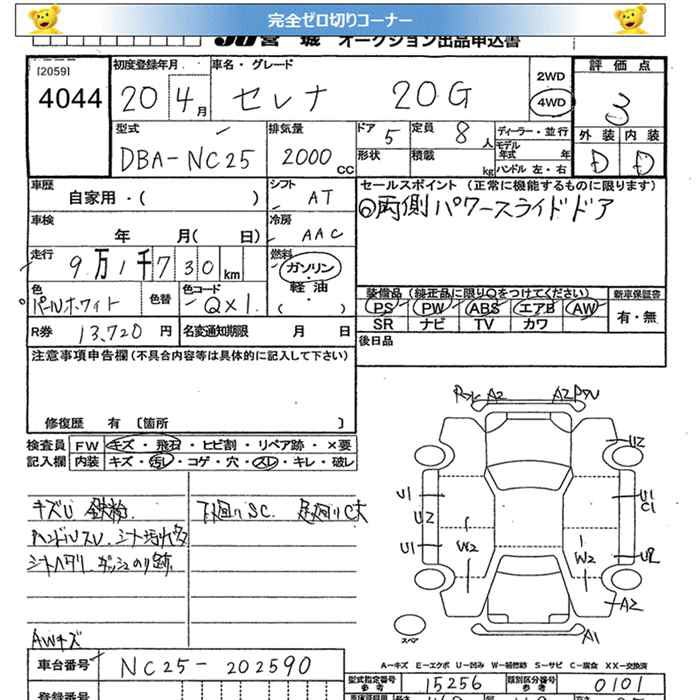 完全ゼロ切りコーナー
JU宮城 オークション出品申込書
[2059]
4044
初度登録年月 20 4月
車名・グレード セレナ 20G
2WD 4WD
評価点 3
外装 内装
D D
型式 DBA-NC25
排気量 2000cc
ドア 5
定員 8人
形状
積載 kg
ディーラー・並行
モデル年式 年
ハンドル 左・右
車歴 自家用・( )
シフト AT
車検 年 月( 日)
冷房 AAC
走行 9万1千730km
燃料 ガソリン・軽油・( )
色 パールホワイト
色替
色コード QX1
R券 13,720円
名変通知期限 月 日
セールスポイント (正常に機能するものに限ります)
◎両側パワースライドドア
装備品 (純正品に限り○をつけてください)
PS PW ABS エアB AW
SR ナビ TV カワ
新車保証書
有・無
後日品
注意事項申告欄(不具合内容等は具体的に記入して下さい)
修復歴 有 [箇所 ]
検査員記入欄
FW キズ・飛石・ヒビ割・リペア跡・×要
内装 キズ・汚レ・コゲ・穴・スレ・キレ・破レ
キズU 鉄粉
下廻りSC 足廻りC大
ハンドルスレ シート汚れ多
シートヘタリ
AWキズ
A2 A2
U2
U1 U1
C1
U2
U1
W2 W2
U2
A2
A1
スペア
A-キズ E-エクボ U-凹み W-補修跡 S-サビ C-腐食 XX-交換済
車台番号 NC25-202590
型式指定番号 参考 15256
類別区分番号 参考 0101
登録番号